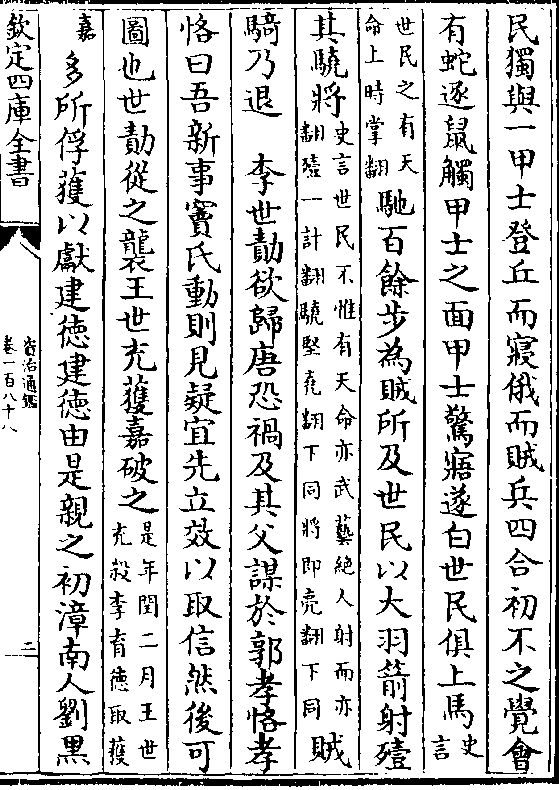 民獨與一甲士登丘而寢俄而賊兵四合初不之覺會
有蛇逐鼠觸甲士之面甲士驚寤遂白世民俱上馬史言
世民之有天命上時掌翻馳百餘步為賊所及世民以大羽箭射殪
其驍將史言世民不惟有天命亦武藝絶人射而亦翻殪一計翻驍堅堯翻下同將即亮翻下同賊
騎乃退　李世勣欲歸唐恐禍及其父謀於郭孝恪孝
恪曰吾新事竇氏動則見疑宜先立效以取信然後可
圖也世勣從之襲王世充獲嘉破之是年閏二月王世充殺李育德取獲
嘉多所俘獲以獻建德建德由是親之初漳南人劉黒
欽定四庫全書
資治通鑑
卷一百八十八
二